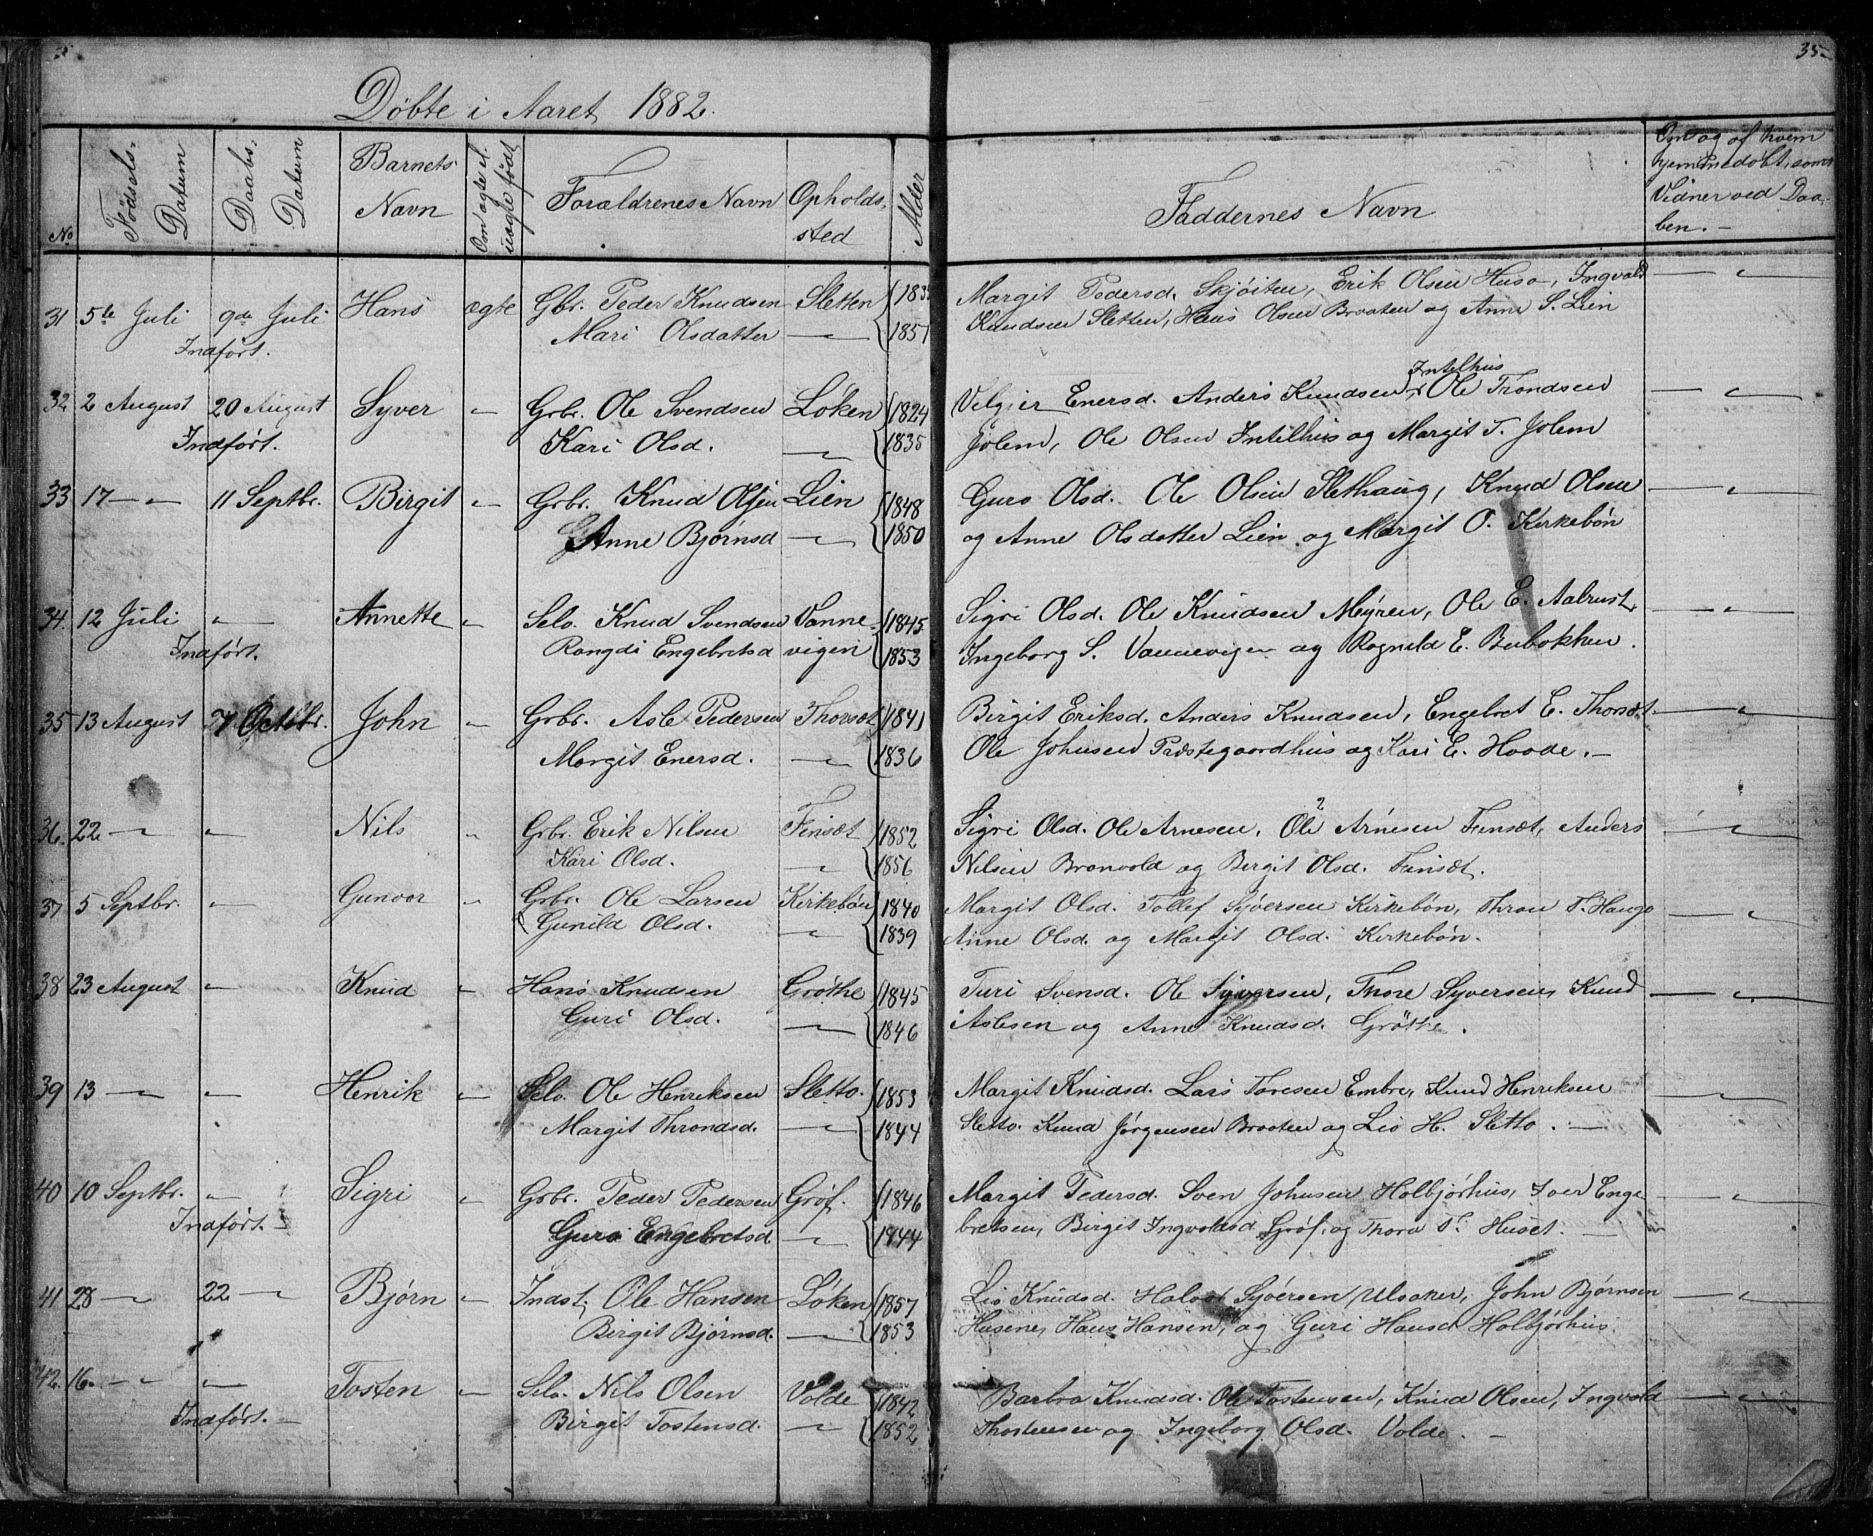 35
Døbte i Aaret 1882.
No
Fødsels-Datum
Daabs-Datum
Barnets Navn
Om ægte el. uægte født
Forældrenes Navn
Opholds-sted
Alder
Faddernes Navn
Om og af hvem hjemmedøbt, samt Vidner ved Daaben.
31 5te Juli 9de Juli Hans ægte Gbr. Peder Knudsen Sletten Margit Pedersd. Skjøiten, Erik Olsen Huso, Ingvald
Indført. Mari Olsdatter — 1857 Knudsen Sletten, Hans Olsen Braaten og Anne S. Lien
32 2 August 20 August Syver — Grbr. Ole Svendsen Løken 1824 Enersd. Anders Knudsen Intilhus, Ole Trondsen
Indført. Kari Olsd. — 1835 Jolem, Ole Olsen Intilhus og Margit T. Jolem
33 17 — 11 Septbr. Birgit — Grbr. Knud Olsen Lien 1848 Guro Olsd. Ole Olsen Slethaug, Knud Olsen
Anne Bjørnsd — 1850 og Anne Olsdatter Lien og Margit O. Kirkebøn
34. 12 Juli — Annette — Selv. Knud Svendsen Vanne- 1845 Sigri Olsd. Ole Knudsen Meyren, Ole E. Aalrust,
Indført. Rangdi Engebretsd vigen 1853 Ingeborg S. Vannevigen og Ragnild E.
35 13 August 7 Octobr. John — Grbr. Asle Pedersen Thorsæt 1841 Birgit Eriksd. Anders Knudsen, Engebret E. Thorsæt
Margit Enersd. — 1836 Ole Johnsen Præstegaardhus og Kari E. Haade. —
36. 22 — — Nils — Grbr. Erik Nilsen Finsæt 1852 Sigri Olsd. Ole Arnesen, Ole 2 Arnesen Finsæt, Anders
Kari Olsd. — 1856 Nilsen Branvold og Bergit Olsd. Finsæt.
37 5 Septbr. — Gunvor — Grbr. Ole Larsen Kirkebøn 1840 Margit Olsd. Tollef Syversen Kirkebøn, Thron T. Haugo
Gunild Olsd. — 1839 Anne Olsd. og Margit Olsd. Kirkebøn.
38 23 August — Knud — Hans Knudsen Grøthe 1845 Turi Svensd. Ole Syversen, Thore Syversen, Knud
Guri Olsd. — 1846 Aslesen og Anne Knudsd. Grøthe.
39 13 — — Henrik — Selv. Ole Henriksen Sletto. 1853 Margit Knudsd. Lars Toresen Embre, Knud Henriksen
Margit Throndsd. — 1844 Sletto. Knud Jørgensen Braaten og Liv H. Sletto. —
40 10 Septbr. — Sigri — Grbr. Peder Pedersen Grøf. 1846 Margit Pedersd. Sven Johnsen Holbjørhus, Iver Enge
Indført. — Guro Engebretsd. — 1844 bretsen, Birgit Ingvoldsd. Grøf. og Thora T. Huset. —
41 28 — 22 — Bjørn — Indst. Ole Hansen Løken 1857 Liv Knudsd. Halvor Syversen Ulsaker, John Bjørnsen
Birgit Bjørnsd. — 1853 Husene, Hans Hansen, og Guri Hansd. Holbjørhus.
42. 16. — — Tosten — Selv. Nils Olsen Volde 1842 Barbra Knudsd. Ole Tostensen, Knud Olsen, Ingvold
Indført. — Birgit Tostensd. — 1852 Thostensen og Ingeborg Olsd. Volde. —